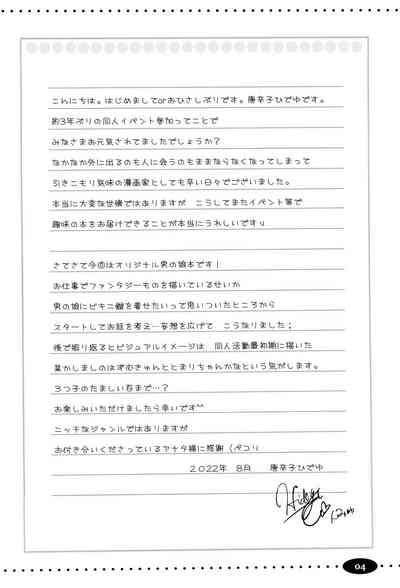 こんにちは。はじめましてorおひさしぶりです。唐辛子ひでゆです。
約3年ぶりの同人イベント参加ってことで
みなさまお元気されてましたでしょうか？
なかなか外に出るのも人に会うのもままならなくなってしまって
引きこもり気味の漫画家としても辛い日々でございました。
本当に大変な世情ではありますが　こうしてまたイベント等で
趣味の本をお届けできることが本当にうれしいです
さてさて今回はオリジナル男の娘本です！
お仕事でファンタジーものを描いているせいか
男の娘にビキニ鎧を着せたいって思いついたところから
スタートしてお話を考え…妄想を広げて　こうなりました；
後で振り返るとビジュアルイメージは　同人活動最初期に描いた
葉かしましのはずむきゅんととまりちゃんかなという気がします。
３つ子のたましい百まで…？
お楽しみいただけましたら幸いです^^
ニッチなジャンルではありますが
お付き合いくださっているアナタ様に感謝（ペコリ
2022年　8月　　唐辛子ひでゆ
Hideyu
04